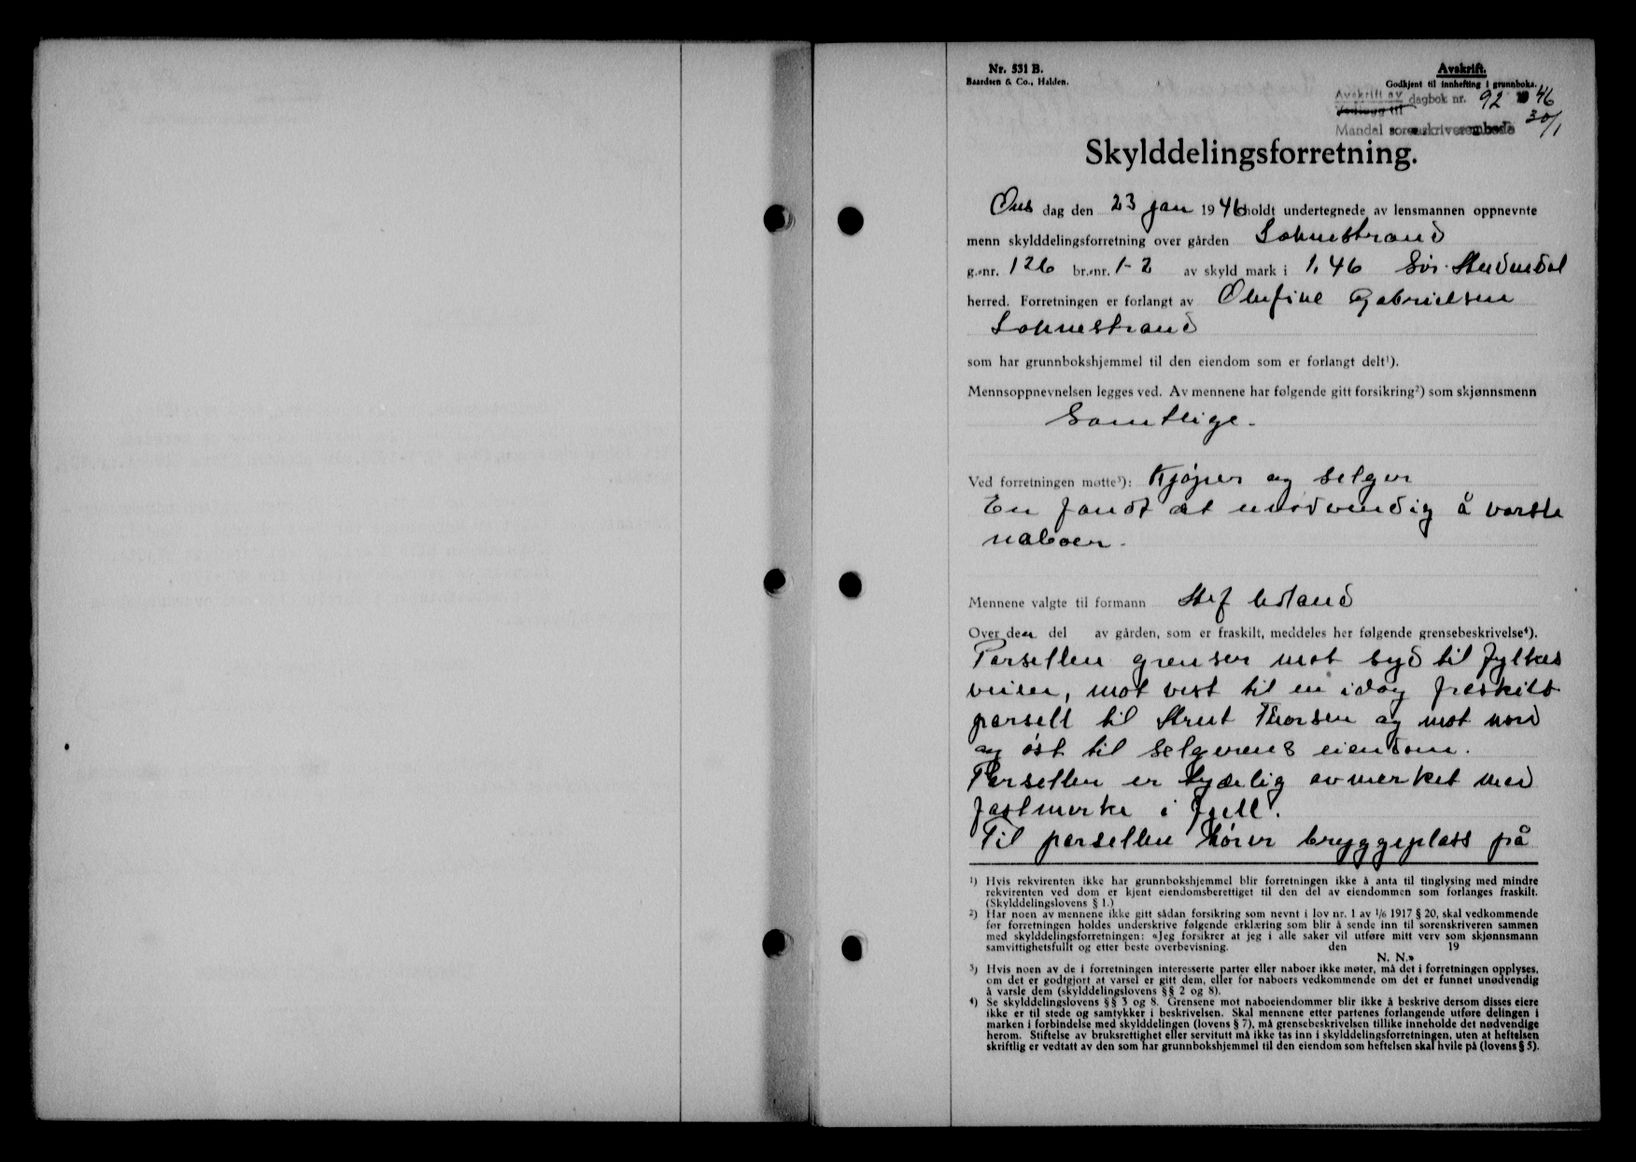 Nr. 531 B.
Baardsen & Co., Halden.
Avskrift.
Godkjent til innhefting i grunnboka.
Avskrift av dagbok nr. 92 1946
Vedlegg til 30/1
Mandal sorenskriverembede
Skylddelingsforretning.
Ons dag den 23 jan 1946 holdt undertegnede av lensmannen oppnevnte
menn skylddelingsforretning over gården Lohnestrand
g.-nr. 126 br.-nr. 1-2 av skyld mark i 1.46 Sør-Audnedal
herred. Forretningen er forlangt av Olufine Gabrielsen
Lohnestrand
som har grunnbokshjemmel til den eiendom som er forlangt delt¹).
Mennsoppnevnelsen legges ved. Av mennene har følgende gitt forsikring²) som skjønnsmenn
Samtlige.
Ved forretningen møtte³): Kjøper og selger
En fandt det unødvendig å varsle
naboer.
Mennene valgte til formann Stef
Over den del av gården, som er fraskilt, meddeles her følgende grensebeskrivelse⁴).
Parsellen grenser mot syd til fylkes
veien, mot vest til en idag fraskilt
parsell til Thorsen og mot nord
og øst til selgerens eiendom.
Parsellen er tydelig avmerket med
fastmerke i fjell.
Til parsellen hører bryggeplass på
¹) Hvis rekvirenten ikke har grunnbokshjemmel blir forretningen ikke å anta til tinglysing med mindre
rekvirenten ved dom er kjent eiendomsberettiget til den del av eiendommen som forlanges fraskilt.
(Skylddelingslovens § 1.)
²) Har noen av mennene ikke gitt sådan forsikring som nevnt i lov nr. 1 av 1/6 1917 § 20, skal vedkommende
før forretningen holdes underskrive følgende erklæring som blir å sende inn til sorenskriveren sammen
med skylddelingsforretningen: «Jeg forsikrer at jeg i alle saker vil utføre mitt verv som skjønnsmann
samvittighetsfullt og etter beste overbevisning. den 19
N. N.»
³) Hvis noen av de i forretningen interesserte parter eller naboer ikke møter, må det i forretningen opplyses,
om det er godtgjort at varsel er gitt dem, eller for naboers vedkommende om det er funnet unødvendig
å varsle dem (skylddelingslovens §§ 2 og 8).
⁴) Se skylddelingslovens §§ 3 og 8. Grensene mot naboeiendommer blir ikke å beskrive dersom disses eiere
ikke er til stede og samtykker i beskrivelsen. Skal mennene etter partenes forlangende utføre delingen i
marken i forbindelse med skylddelingen (lovens § 7), må grensebeskrivelsen tillike inneholde det nødvendige
herom. Stiftelse av bruksrettighet eller servitutt må ikke tas inn i skylddelingsforretningen, uten at heftelsen
skriftlig er vedtatt av den som har grunnbokshjemmel til den eiendom som heftelsen skal hvile på (lovens § 5).